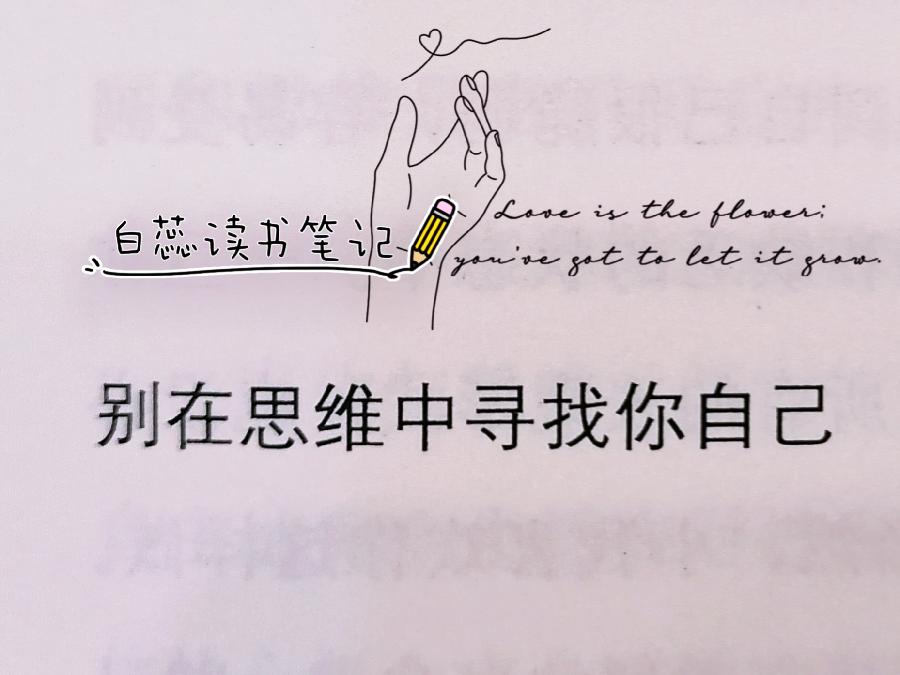 白蕊读书笔记
Love is the flower;
you've got to let it grow.
别在思维中寻找你自己